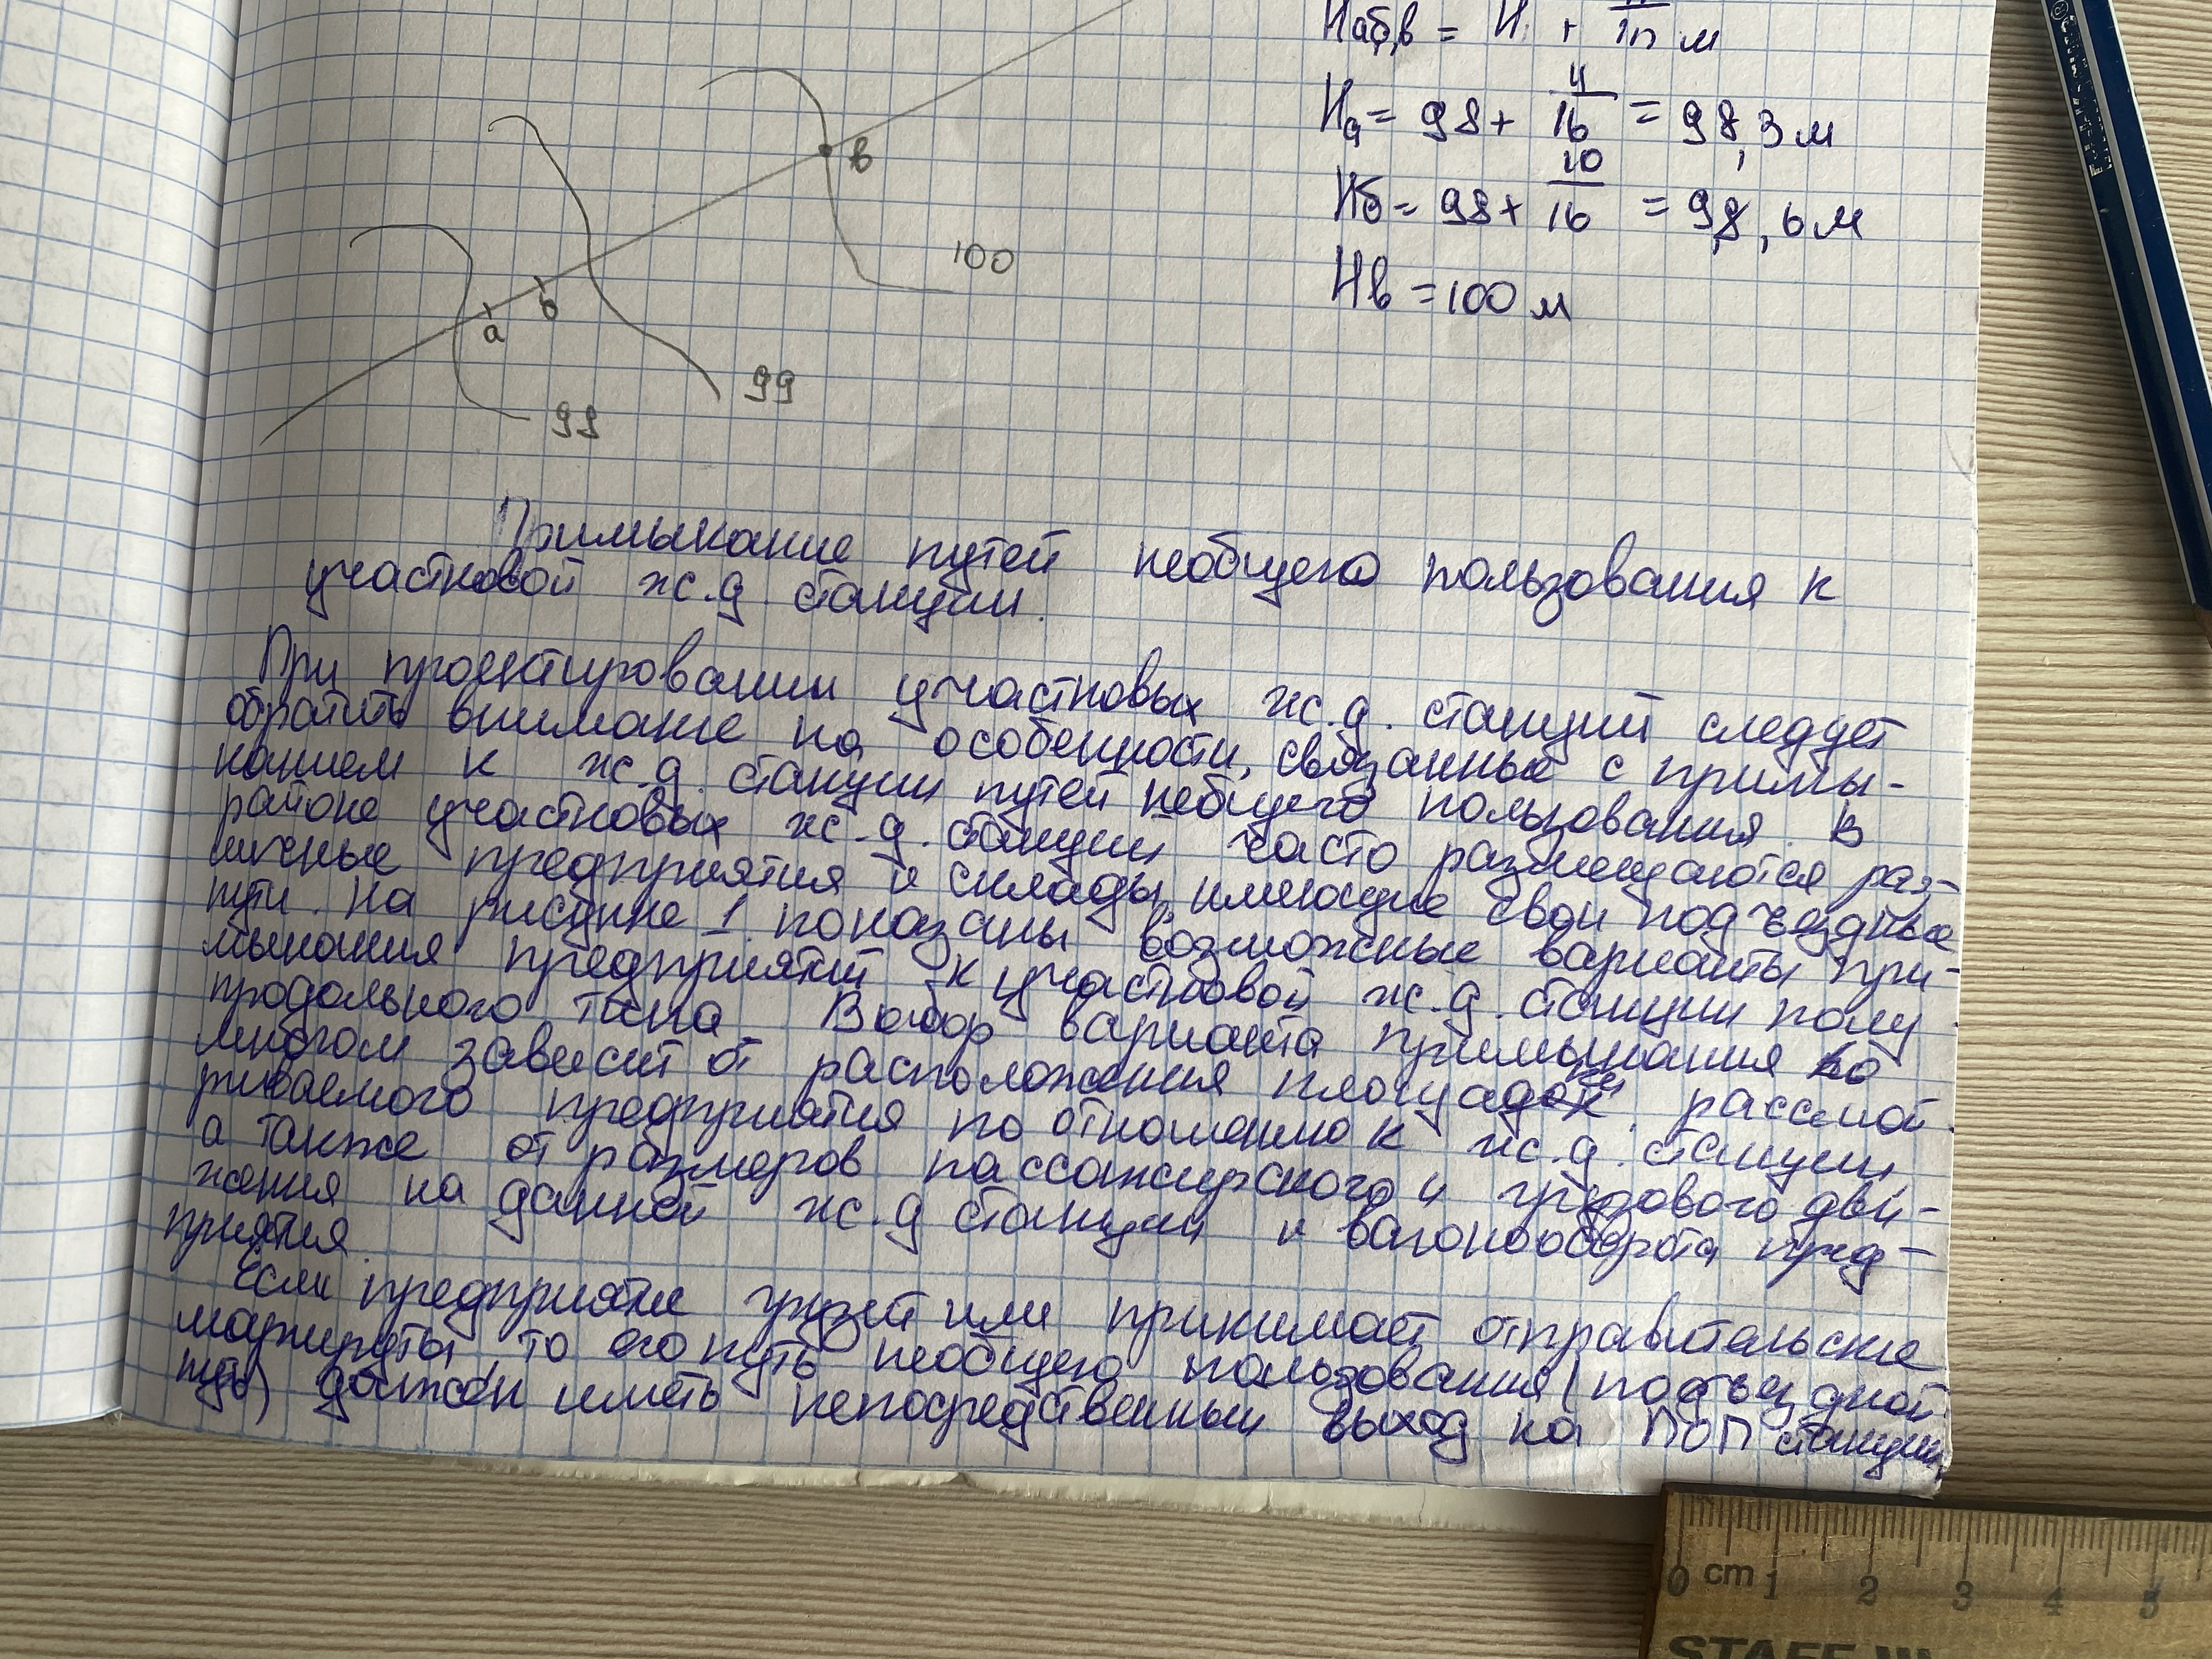 Hаб,в = H + м
Hа = 98 + 4/16 = 98,3 м
Hб = 98 + 10/16 = 98,6 м
Hв = 100 м
в
100
а
б
99
98
Примыкание путей необщего пользования к
участковой ж.д. станции.
При проектировании участковых ж.д. станций следует
обратить внимание на особенности, связанные с примы-
канием к ж.д. станции путей небщего пользования. В
районе участковых ж.д. станций часто размещаются раз-
личные предприятия и склады, имеющие свои подъездные
пути. На рисунке 1 показаны возможные варианты при-
мыкания предприятий к участковой ж.д. станции полу
продольного типа. Выбор варианта примыкания во
многом зависит от расположения площадки рассмот
риваемого предприятия по отношению к ж.д. станции,
а также от размеров пассажирского и грузового дви-
жения на данной ж.д станции и вагонооборота пред-
приятия.
Если предприятие грузит или принимает отправительские
маршруты, то его путь необщего пользования (подъездной
путь) должен иметь непосредственный выход на ПОП станции,
0 cm 1 2 3 4 5